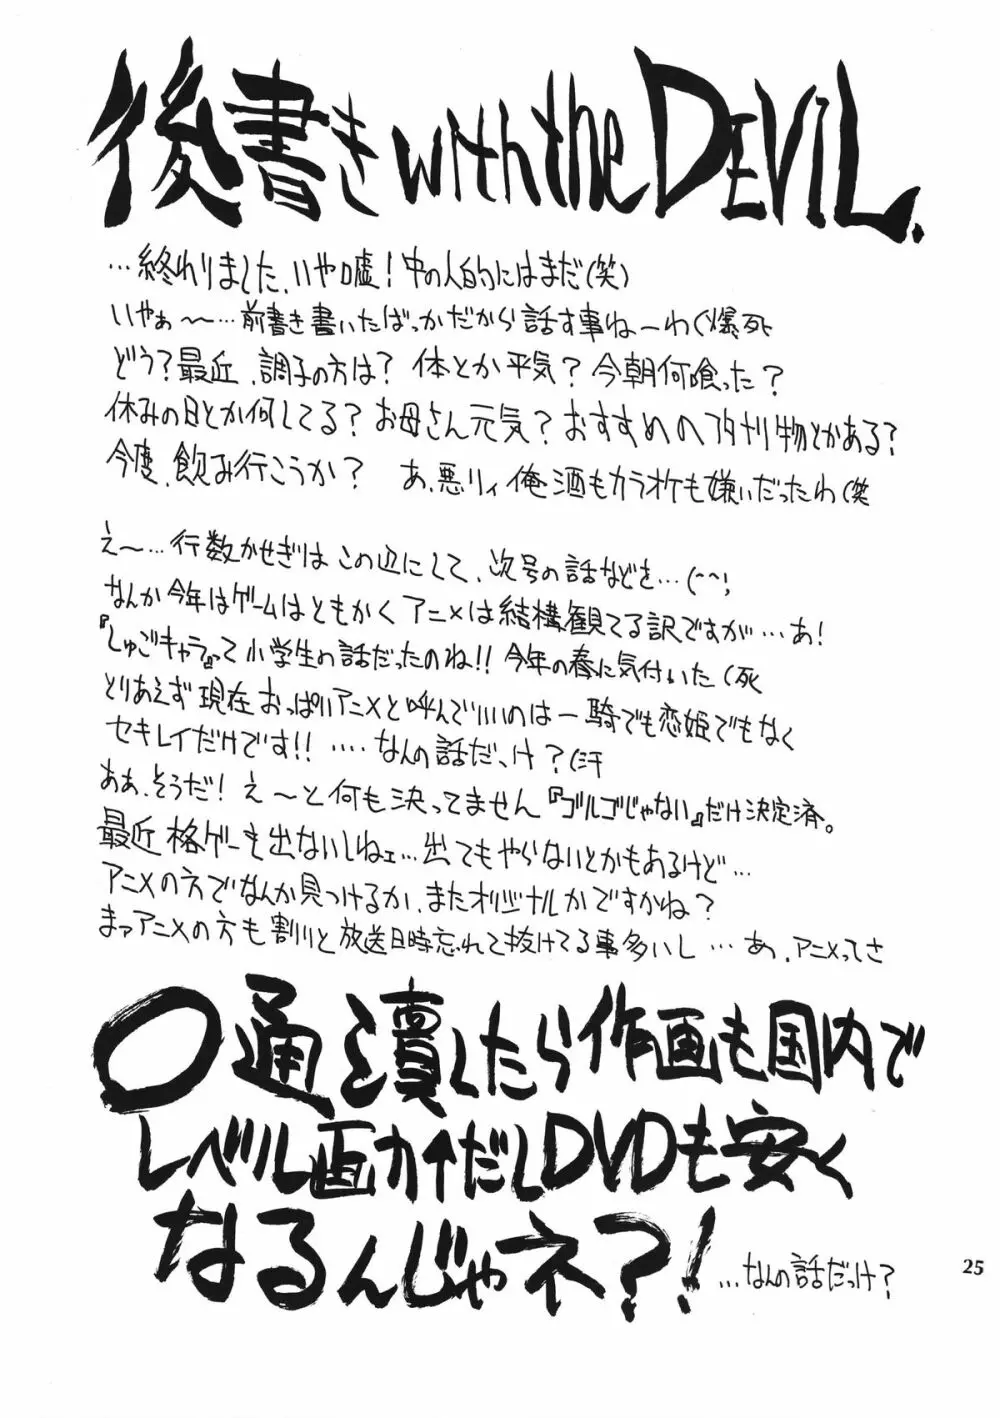 後書き with the DEVIL.
…終わりました、いや嘘！中の人的にはまだ(笑)
いやぁ〜…前書き書いたばっかだから話す事ねーわ(爆死
どう？最近、調子の方は？体とか平気？今朝何喰った？
休みの日とか何してる？お母さん元気？おすすめのフタナリ物とかある？
今度、飲み行こうか？ あ、悪リィ俺酒もカラオケも嫌いだったわ(笑
え〜…行数かせぎはこの辺にして、次号の話などを…(^^;
なんか今年はゲームはともかくアニメは結構観てる訳ですが…あ！
『しゅごキャラ』って小学生の話だったのね!!今年の春に気付いた(死
とりあえず現在おっぱいアニメと呼んでいいのは一騎でも恋姫でもなく
セキレイだけです!!‥‥なんの話だっけ？(汗
ああ、そうだ！え〜と何も決ってません『ゴルゴじゃない』だけ決定済。
最近格ゲーも出ないしねェ…出てもやらないとかもあるけど…
アニメの方でなんか見つけるか、またオリジナルかですかね？
まァアニメの方も割りと放送日時忘れて抜けてる事多いし…あ、アニメってさ
〇通潰したら作画も国内で
レベル画力↑だしDVDも安く
なるんじゃネ？！
…なんの話だっけ？
25